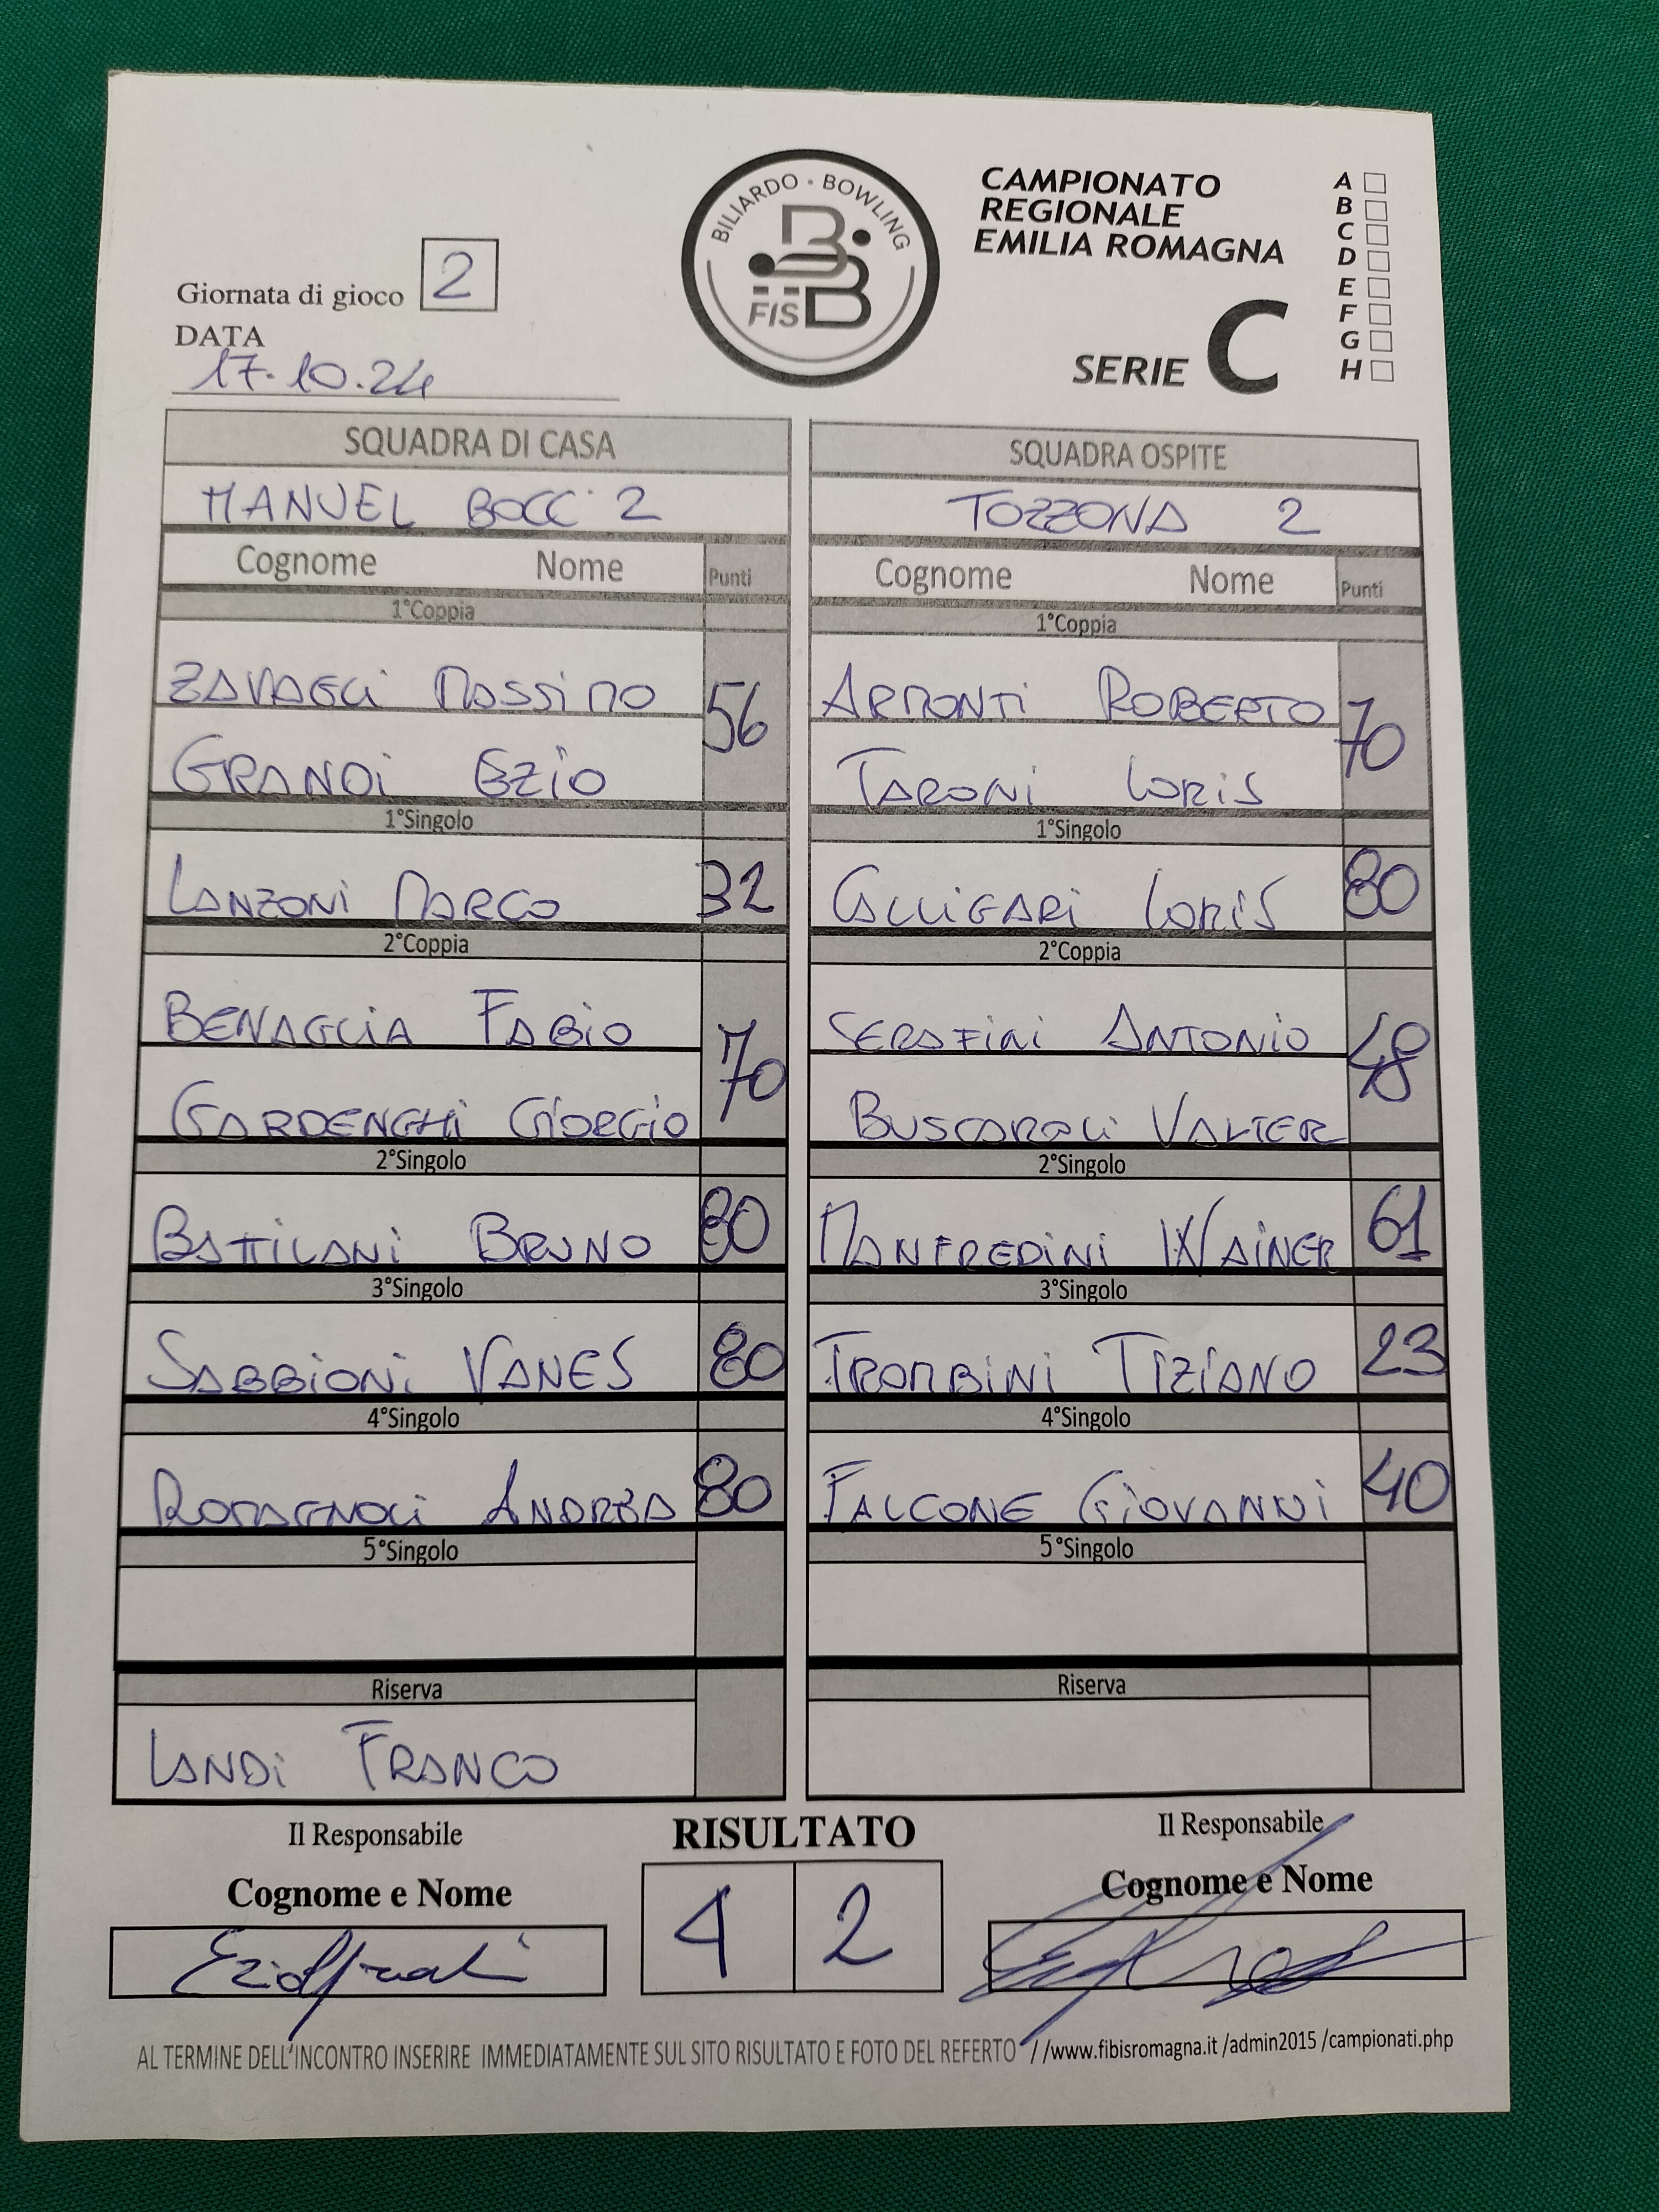 BILIARDO · BOWLING
FISBB
CAMPIONATO
REGIONALE
EMILIA ROMAGNA
SERIE C
A
B
C
D
E
F
G
H
Giornata di gioco 2
DATA
17.10.24
SQUADRA DI CASA
MANUEL BOCC 2
Cognome Nome Punti
1°Coppia
ZAVAGLi MASSiMO
56
GRANDi EZiO
1°Singolo
LANZONi MARCO 32
2°Coppia
BENAGLiA FABiO
70
GARDENGHi GiORGiO
2°Singolo
BATTiLANi BRUNO 80
3°Singolo
SABBiONi VANES 80
4°Singolo
ROMAGNOLi ANDREA 80
5°Singolo
Riserva
LANDi FRANCO
SQUADRA OSPITE
TOZZONA 2
Cognome Nome Punti
1°Coppia
ARMONTi ROBERTO
70
TARONi LORiS
1°Singolo
CALLiGARi LORiS 80
2°Coppia
SERAFiNi ANTONiO
48
BUSCAROLi VALTER
2°Singolo
MANFREDiNi WAiNER 61
3°Singolo
TROMBiNi TiZiANO 23
4°Singolo
FALCONE GiOVANNi 40
5°Singolo
Riserva
Il Responsabile
Cognome e Nome
RISULTATO
4 2
Il Responsabile
Cognome e Nome
AL TERMINE DELL'INCONTRO INSERIRE IMMEDIATAMENTE SUL SITO RISULTATO E FOTO DEL REFERTO //www.fibisromagna.it /admin2015 /campionati.php